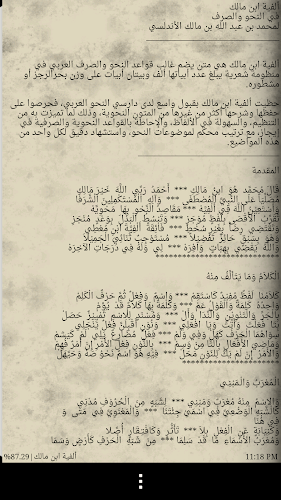 ألفية ابن مالك
في النحو والصرف
لمحمد بن عبد الله بن مالك الأندلسي
ألفية ابن مالك هي متن يضم غالب قواعد النحو والصرف العربي في
منظومة شعرية يبلغ عدد أبياتها ألف وبيتان أبيات على وزن بحر الرجز أو
مشطوره.
حظيت ألفية ابن مالك بقبول واسع لدى دارسي النحو العربي، فحرصوا على
حفظها وشرحها أكثر من غيرها من المتون النحوية، وذلك لما تميزت به من
التنظيم، والسهولة في الألفاظ، والإحاطة بالقواعد النحوية والصرفية في
إيجاز، مع ترتيب محكم لموضوعات النحو، واستشهاد دقيق لكل واحد من
هذه المواضيع.
المقدمة
قَالَ مُحَمَّد هُوَ ابنُ مَالِكِ *** أَحْمَدُ رَبِّي اللَّهَ خَيْرَ مَالِكِ
مُصَلِّيَاً عَلَى النَّبِيِّ الْمُصْطَفَى *** وآلِهِ الْمُسْتكْمِلِينَ الْشَّرَفَا
وَأَسْتعِيْنُ اللَّهَ فِي ألْفِيَّهْ *** مَقَاصِدُ النَّحْوِ بِهَا مَحْوِيَّهْ
تُقَرِّبُ الأَقْصَى بِلَفْظٍ مُوْجَزِ *** وَتَبْسُطُ الْبَذْلَ بِوَعْدٍ مُنْجَزِ
وَتَقْتَضي رِضَاً بِغَيرِ سُخْطِ *** فَائِقَةً أَلْفِيَّةَ ابْنِ مُعْطِي
وَهْوَ بِسَبْقٍ حَائِزٌ تَفْضِيْلاً *** مُسْتَوْجِبٌ ثَنَائِيَ الْجَمِيْلاَ
وَاللَّهُ يَقْضِي بِهِبَاتٍ وَافِرَهْ *** لِي وَلَهُ في دَرَجَاتِ الآخِرَهْ
******************************
الْكَلاَمُ وَمَا يَتَألَّفُ مِنْهُ
كَلاَمُنَا لَفْظٌ مُفِيْدٌ كَاسْتَقِمْ *** وَاسْمٌ وَفِعْلٌ ثُمَّ حَرْفٌ الْكَلِمْ
وَاحِدُهُ كَلِمَةٌ وَالْقَوْلُ عَمّ *** وَكَلْمَةٌ بِهَا كَلاَمٌ قَدْ يُؤَمّ
بِالجَرِّ وَالْتَّنْوِيْنِ وَالْنِّدَا وَأَلْ *** وَمُسْنَدٍ لِلاسْمِ تَمْيِيْزٌ حَصَلْ
بِتَا فَعَلْتَ وَأَتَتْ وَيَا افْعَلِي *** وَنُوْنِ أَقْبِلَنَّ فِعْلٌ يَنْجَلِي
سِوَاهُمَا الْحَرْفُ كَهَلْ وَفِي وَلَمْ *** فِعْلٌ مُضَارِعٌ يَلِي لَمْ كَيَشَمْ
وَمَاضِيَ الأَفْعَالِ بِالتَّا مِزْ وَسِمْ *** بِالنُّوْنِ فِعْلَ الأَمْرِ إِنْ أَمْرٌ فُهِمْ
وَالأَمْرُ إِنْ لَمْ يَكُ لِلنُّوْنِ مَحَلّ *** فِيْهِ هُوَ اسْمٌ نَحْوُ صَهْ وَحَيَّهَلْ
******************************
الْمُعْرَبُ وَالْمَبْنِي
وَالاسْمُ مِنْهُ مُعْرَبٌ وَمَبْنِي *** لِشَبَهٍ مِنَ الْحُرُوْفِ مُدْنِي
كَالشَّبَهِ الْوَضْعِيِّ فِي اسْمَيْ جِئْتَنَا *** وَالْمَعْنَوِيِّ فِي مَتَى وَ
فِي هُنَا
وَكَنِيَابَةٍ عَنِ الْفِعْلِ بِلاَ *** تَأَثُّرٍ وَكَافْتِقَارٍ أُصِّلاَ
وَمُعْرَبُ الأَسْمَاءِ مَا قَدْ سَلِمَا *** مِنْ شَبَهِ الْحَرْفِ كَأَرْضٍ وَسُمَا
ألفية ابن مالك |87.29%
11:18 PM